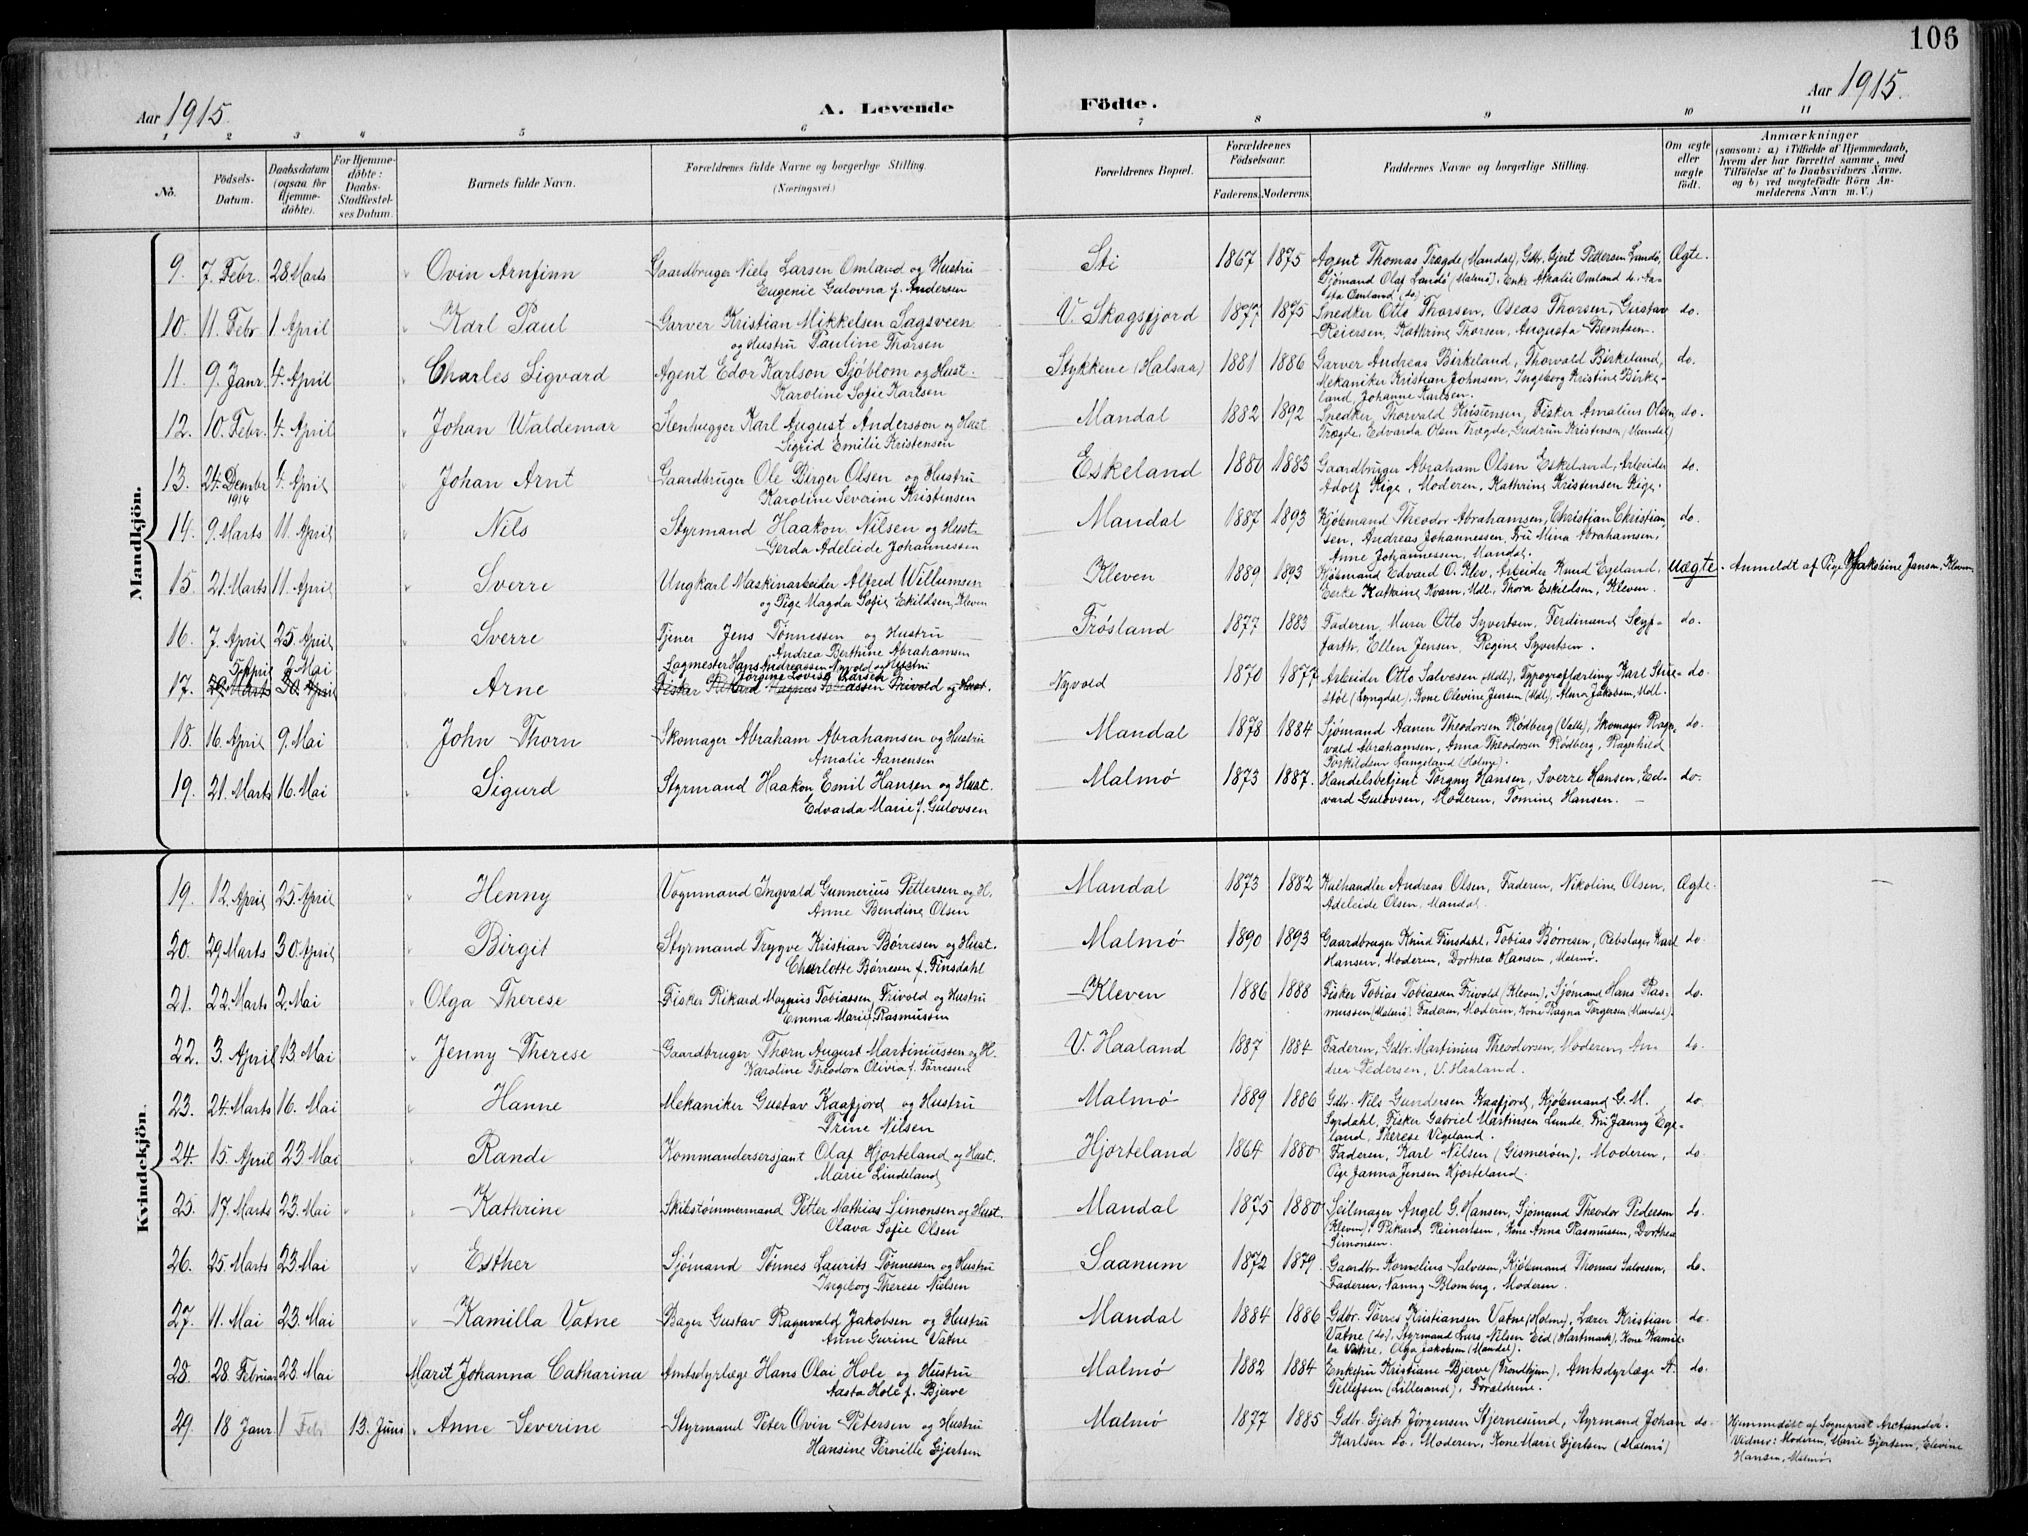 106
Aar 1915.
A. Levende
Födte.
Aar 1915.
1 2 3 4 5 6 7 8 9 10 11
No. Födsels-Datum. Daabsdatum (ogsaa for Hjemmedöbte). For Hjemmedöbte: Daabs-Stadfæstelses Datum. Barnets fulde Navn. Forældrenes fulde Navne og borgerlige Stilling. (Næringsvei.) Forældrenes Bopæl. Forældrenes Födselsaar. Faderens. Moderens. Faddernes Navne og borgerlige Stilling. Om ægte eller uægte födt. Anmærkninger (saasom: a) i Tilfælde af Hjemmedaab, hvem der har forrettet samme, med Tilföielse af to Daabsvidners Navne, og b) ved uægtefödte Börn Anmelderens Navn m. V.)
Mandkjön.
9. 7. Febr. 28 Marts " Ovin Arnfinn Gaardbruger Niels Larsen Omland og Hustru Sti 1867 1875 Agent Thomas Trægde (Mandal), Gdbr. Gjert Pettersen Landö, Ægte.
Eugenie Gulovna f. Andersen Sjömand Olaf Landö (Malmö), Enke Athalie Omland do. Aasta Omland (do)
10. 11. Febr. 1 April " Karl Paul Garver Kristian Mikkelsen Sagsveen V. Skogsfjord 1877 1875 Snedker Otto Thorsen, Oseas Thorsen, Gustav do.
og Hustru Pauline Thorsen Reiersen, Kathrine Thorsen, Augusta Berntsen.
11. 9. Janr. 4. April " Charles Sigvard Agent Edor Karlson Sjöblom og Hust. Stykkene (Halsaa) 1881 1886 Garver Andreas Birkeland, Thorvald Birkeland, do.
Karoline Sofie Karlsen Mekaniker Kristian Johnsen, Ingeborg Kristine Birkeland, Johanne Karlsen.
12. 10. Febr. 4. April " Johan Waldemar Stenhugger Karl August Andersson og Hust Mandal 1882 1892 Snedker Thorvald Kristensen, Fisker Amalius Olsen, do.
Sigrid Emilie Kristensen Trægde, Edvarda Olsen Trægde, Gudrun Kristensen (Mandal)
13. 24. Dember 1914 4. April " Johan Arnt Gaardbruger Ole Birger Olsen og Hustru Eskeland 1880 1883 Gaardbruger Abraham Olsen Eskeland, Arbeider do.
Karoline Severine Kristensen Adolf Kige, Moderen, Kathrine Kristensen Kige.
14. 9. Marts 11. April " Nils Styrmand Haakon Nilsen og Hust. Mandal 1887 1893 Kjöbmand Theodor Abrahamsen, Christian Christiansen, do.
Gerda Adeleide Johannessen Andreas Johannessen, Fru Mina Abrahamsen, Anne Johannessen, Mandal.
15. 21. Marts 11. April " Sverre Ungkarl Maskinarbeider Alfred Willumsen Kleven 1889 1893 Kjöbmand Edvard O. Klev, Arbeider Knud Egeland, Uægte. Anmeldt af Pige Jansen, Kleven
og Pige Magda Sofie Eskildsen, Kleven Enke Kathrine Kvam, Mdl., Thora Eskildsen, Kleven.
16. 7. April 25. April " Sverre Tjener Jens Tönnessen og Hustru Frösland 1877 1883 Faderen, Murer Otto Syvertsen, Ferdinand do.
Andrea Berthine Abrahamsen Ellen Jensen, Regine Syvertsen.
17. 5. April 2. Mai " Arne Sagmester Hans Andreassen Nyvold og Hustru Nyvold 1870 1877 Arbeider Otto Salvesen (Mdl.), Typograflærling Karl Stuestöl do.
29 Marts 30 April Jorgine Lovise Larsen (Lyngdal), Kone Olevine Jensen (Mdl), Alma Jakobsen, Mdl.
Fisker Rikard Magnus Tobiassen Frivold og Hust.
18. 16. April 9. Mai " John Thorn Skomager Abraham Abrahamsen og Hustru Mandal 1878 1884 Sjömand Aanen Theodorsen Rödberg (Valle), Skomager Ragnvald do.
Amalie Aanensen Abrahamsen, Anna Theodorsen Rödberg, Ragnhild Torkildsen Langeland (Holme).
19. 21. Marts 16. Mai " Sigurd Styrmand Haakon Emil Hansen og Hust. Malmö 1873 1887. Handelsbetjent Torgny Hansen, Sverre Hansen, Edvard do.
Edvarda Marie f. Gulovsen Gulovsen, Moderen, Tomine Hansen.
Kvindekjön.
19. 12. April 25. April " Henny Vognmand Ingvald Gunnerius Pettersen og H. Mandal 1873 1882 Kulhandler Andreas Olsen, Faderen, Nikoline Olsen, Ægte.
Anne Bendine Olsen Adeleide Olsen, Mandal.
20. 29 Marts 30. April " Birgit Styrmand Trygve Kristian Börresen og Hust. Malmö 1890 1893 Gaardbruger Knud Finsdahl, Tobias Börresen, Rebslager Karl do.
Charlotte Börresen f. Finsdahl Hansen, Moderen, Dorthea Hansen, Malmö.
21. 22. Marts 2. Mai " Olga Therese Fisker Rikard Magnus Tobiassen, Frivold og Hustru Kleven 1886 1888 Fisker Tobias Tobiassen Frivold (Kleven), Sjömand Hans Rasmussen do.
Emma Marie Rasmussen (Malmö), Faderen, Moderen, Kone Ragna Torgersen (Mandal).
22. 3. April 13. Mai " Jenny Therese Gaardbruger Thorn August Martiniussen og H. V. Haaland 1887 1884 Faderen, Gdbr. Martinius Theodorsen, Moderen, Andrea do.
Karoline Theodora Olivia f. Törressen Pedersen, V. Haaland.
23. 24. Marts 16. Mai " Hanne Mekaniker Gustav Kaafjord og Hustru Malmö 1889 1886 Gdbr. Nils Gundersen Kaafjord, Kjöbmand G. M. do.
Trine Nilsen Syrdahl, Fisker Gabriel Martinsen Lunde, Fru Janny Egeland, Therese Vigeland.
24. 15. April 23. Mai " Randi Kommandersersjant Olaf Hjorteland og Hust. Hjorteland 1864 1880 Faderen, Karl Nilsen (Gismeröen), Moderen, do.
Marie Lindeland Pige Janna Jensen Hjorteland.
25. 17. Marts 23. Mai " Kathrine Skibstömmermand Petter Mathias Simonsen og Hust. Mandal 1875 1880 Seilmager Angel G. Hansen, Sjömand Theodor Pedersen do.
Olava Sofie Olsen (Kleven), Rikard Reinertsen, Kone Anna Rasmussen, Dorthea Simonsen.
26. 25. Marts 23. Mai " Esther Sjömand Tönnes Laurits Tönnessen og Hustru Saanum 1872 1879. Gaardbr. Kornelius Salvesen, Kjöbmand Thomas Salvesen, do.
Ingeborg Therese Nielsen Faderen, Nanny Blomberg, Moderen.
27. 11. Mai 23. Mai " Kamilla Vatne Bager Gustav Ragnvald Jakobsen og Hustru Mandal 1884 1886 Gdbr. Törres Kristiansen Vatne (Holme), Lærer Kristian do.
Anne Gurine Vatne Vatne (do), Styrmand Lars Nilsen Eid (Hartmark), Kone Kamilla Vatne, Olga Jakobsen (Mandal).
28. 28. Februar 23. Mai Marit Johanna Catharina Amtsdyrlæge Hans Olai Hole og Hustru Malmö 1882 1884 Enkefru Kristiane Bjerve (Trondhjem), Amtsdyrlæge A. do.
Aasta Hole f. Bjerve Tellefsen (Lillesand), Forældrene.
29. 18 Janr. 1 Feb 13. Juni " Anne Severine Styrmand Peter Ovin Petersen og Hustru Malmö 1877 1885 Gdbr. Gjert Jörgensen Stjernesund, Styrmand Johan do. Hjemmedöbt af Sogneprest Arctander.
Hansine Pernille Gjertsen Karlsen do., Moderen, Kone Marie Gjertsen (Malmö) Vidner: Moderen, Marie Gjertsen, Elevine Hansen, Malmö.